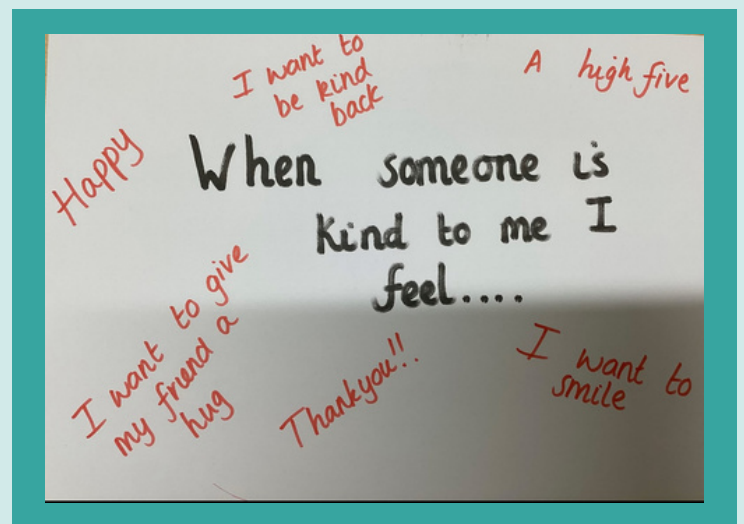 I want to
be kind
back
A high five
Happy
When someone is
kind to me I
feel....
I want to give
my friend a
hug
Thankyou!!
I want to
smile